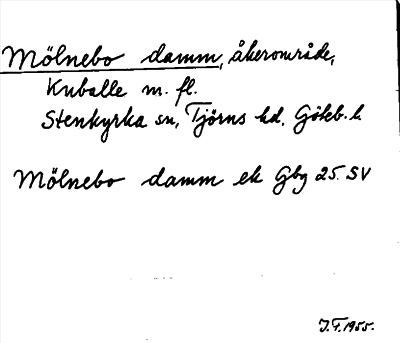 Mölnebo damm, åkerområde,
Kuballe m. fl.
Stenkyrka sn, Tjörns hd, Göteb. l.
Mölnebo damm ek Gbg 25. SV
J.F. 1955.